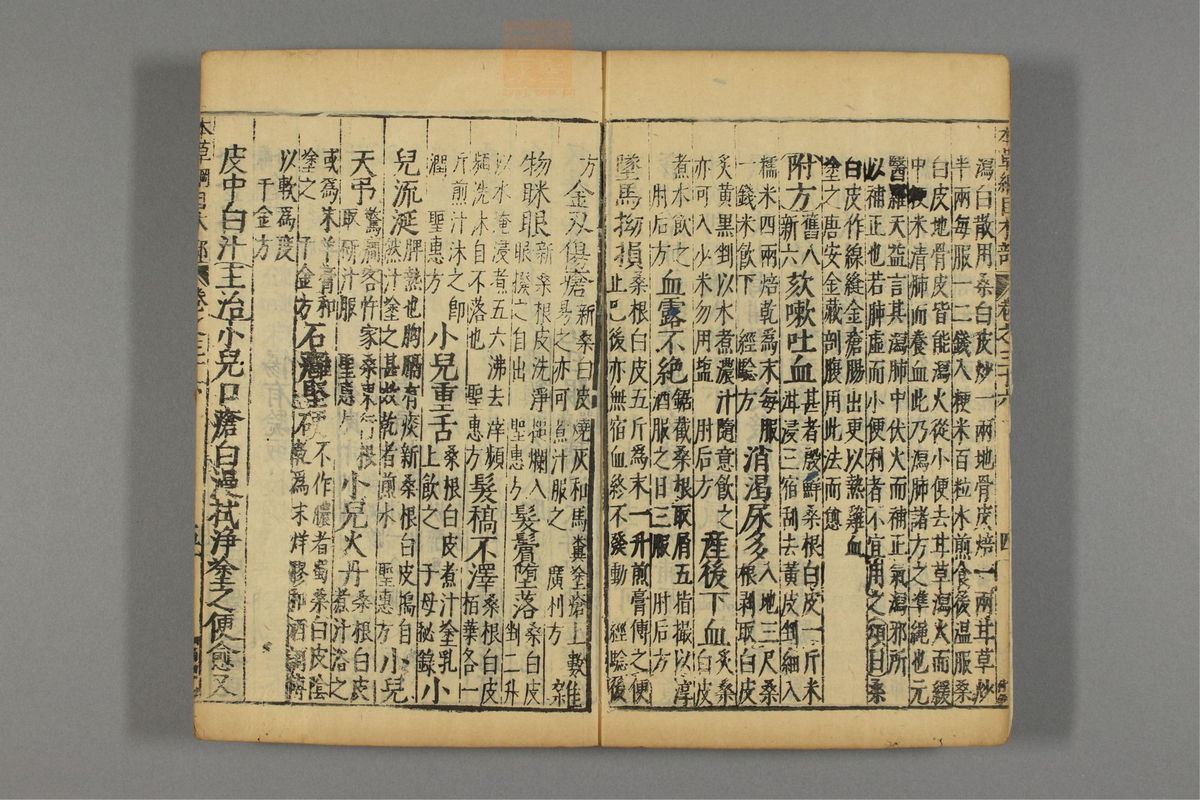 本草綱目木部 卷之三十六 四
瀉白散用桑白皮炒一兩地骨皮焙一兩甘草炒
半兩每服一二錢入粳米百粒水煎食後溫服桑
白皮地骨皮皆能瀉火從小便去甘草瀉火而緩
中粳米清肺而養血此乃瀉肺諸方之準繩也元
醫羅天益言其瀉肺中伏火而補正氣瀉邪所
以補正也若肺虛而小便利者不宜用之頌曰桑
白皮作線縫金瘡腸出更以熱雞血
塗之唐安金藏剖腹用此法而愈
附方舊八新六 欬嗽吐血甚者殷鮮桑根白皮一斤米泔浸三宿刮去黃皮剉細入
糯米四兩焙乾為末每服一錢米飲下 經驗方 消渴尿多入地三尺桑根剝取白皮炙
炙黃黑剉以水煮濃汁隨意飲之亦可入少米勿用鹽 肘后方 產後下血炙桑白皮
煮水飲之 肘后方 血露不絕鋸截桑根取屑五指撮以淳酒服之日三服 肘后方
墜馬拗損桑根白皮五斤為末一升煎膏傅之便止已後亦無宿血終不發動 經驗後
方 金刃傷瘡新桑白皮燒灰和馬糞塗瘡上數易之亦可煮汁服之 廣州方 雜
物眯眼新桑根皮洗淨搥爛入眼撥之自出 聖惠方 髮鬢墮落桑白皮剉二升
以水淹浸煮五六沸去滓頻頻洗沐自不落也 聖惠方 髮稿不澤桑根白皮柏葉各一
斤煎汁沐之即潤 聖惠方 小兒重舌桑根白皮煮汁塗乳上飲之 子母秘錄 小
兒流涎脾熱也胸膈有痰新桑根白皮搗自然汁塗之甚效乾者煎水 聖惠方 小兒
天弔驚癇客忤家桑東行根取研汁服 聖惠方 小兒火丹桑根白皮煮汁浴之
或為末羊膏和塗之 千金方 石癰堅硬不作膿者蜀桑白皮陰乾為末烊膠和酒調傅
以軟為度 千金方
皮中白汁主治小兒口瘡白漫拭淨塗之便愈又
本草綱目木部